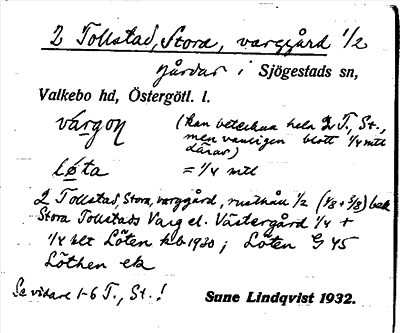 2 Tollstad, Stora, varggård 1/2
gårdar i Sjögestads sn,
Valkebo hd, Östergötl. l.
várgoɳ (kan beteckna hela 2 T., St.,
men vanligen blott 1/4 mtl
därav)
lø̀ta = 1/4 mtl
2 Tollstad, Stora, varggård, rusthåll 1/2 (1/8 + 3/8)
Stora Tollstads Varg el. Västergård 1/4 +
1/4 mtl Löten 1930; Löten G 45
Löthen ek
Se vidare 1-6 T., St.!
Sune Lindqvist 1932.